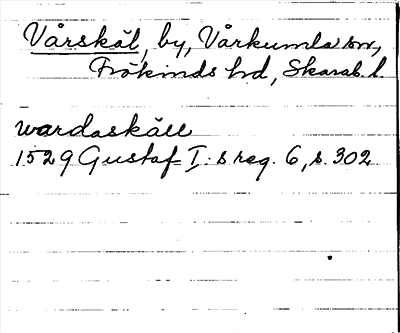 Vårskäl, by, Vårkumla sn,
Frökinds hd, Skarab. l.
wardaskäll
1529 Gustaf I:s reg. 6, s. 302